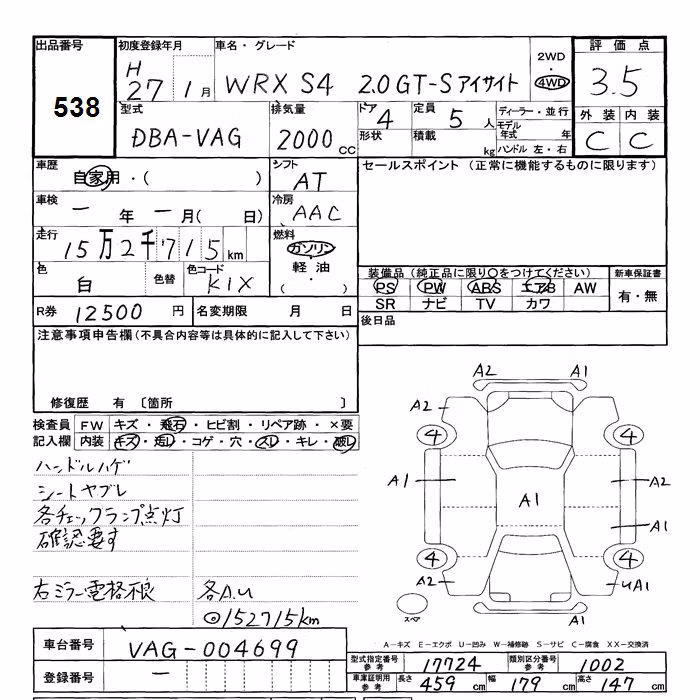 出品番号 初度登録年月 車名・グレード 評価点
538
H 27 1月 WRX S4 2.0GT-Sアイサイト 2WD・4WD 3.5
型式 排気量 ドア 定員 ディーラー・並行 外装 内装
DBA-VAG 2000cc 4 5人 モデル年式 年 C C
形状 積載 kg ハンドル 左・右
車歴 自家用・( ) シフト AT セールスポイント (正常に機能するものに限ります)
車検 一年 一月( 日) 冷房 AAC
走行 15万2千715km 燃料 ガソリン
軽油
( )
色 白 色替 色コード K1X
装備品(純正品に限り○をつけてください) 新車保証書
PS PW ABS エアB AW 有・無
SR ナビ TV カワ
R券 12500円 名変期限 月 日 後日品
注意事項申告欄(不具合内容等は具体的に記入して下さい)
修復歴 有 〔箇所 〕
検査員 FW キズ・飛石・ヒビ割・リペア跡・×要
記入欄 内装 キズ・汚レ・コゲ・穴・スレ・キレ・破レ
ハンドルハゲ
シートヤブレ
各チェックランプ点灯
確認要す
右ミラー電格不良 各A.U
◎152715km
A2 A1
A2
4 4
A1 A1 A2
A1
4 4
A2 UA1
スペア A1
A-キズ E-エクボ U-凹み W-補修跡 S-サビ C-腐食 XX-交換済
車台番号 VAG-004699
型式指定番号 参考 17724 類別区分番号 参考 1002
登録番号 一
車庫証明用 参考 長さ 459cm 幅 179cm 高さ 147cm